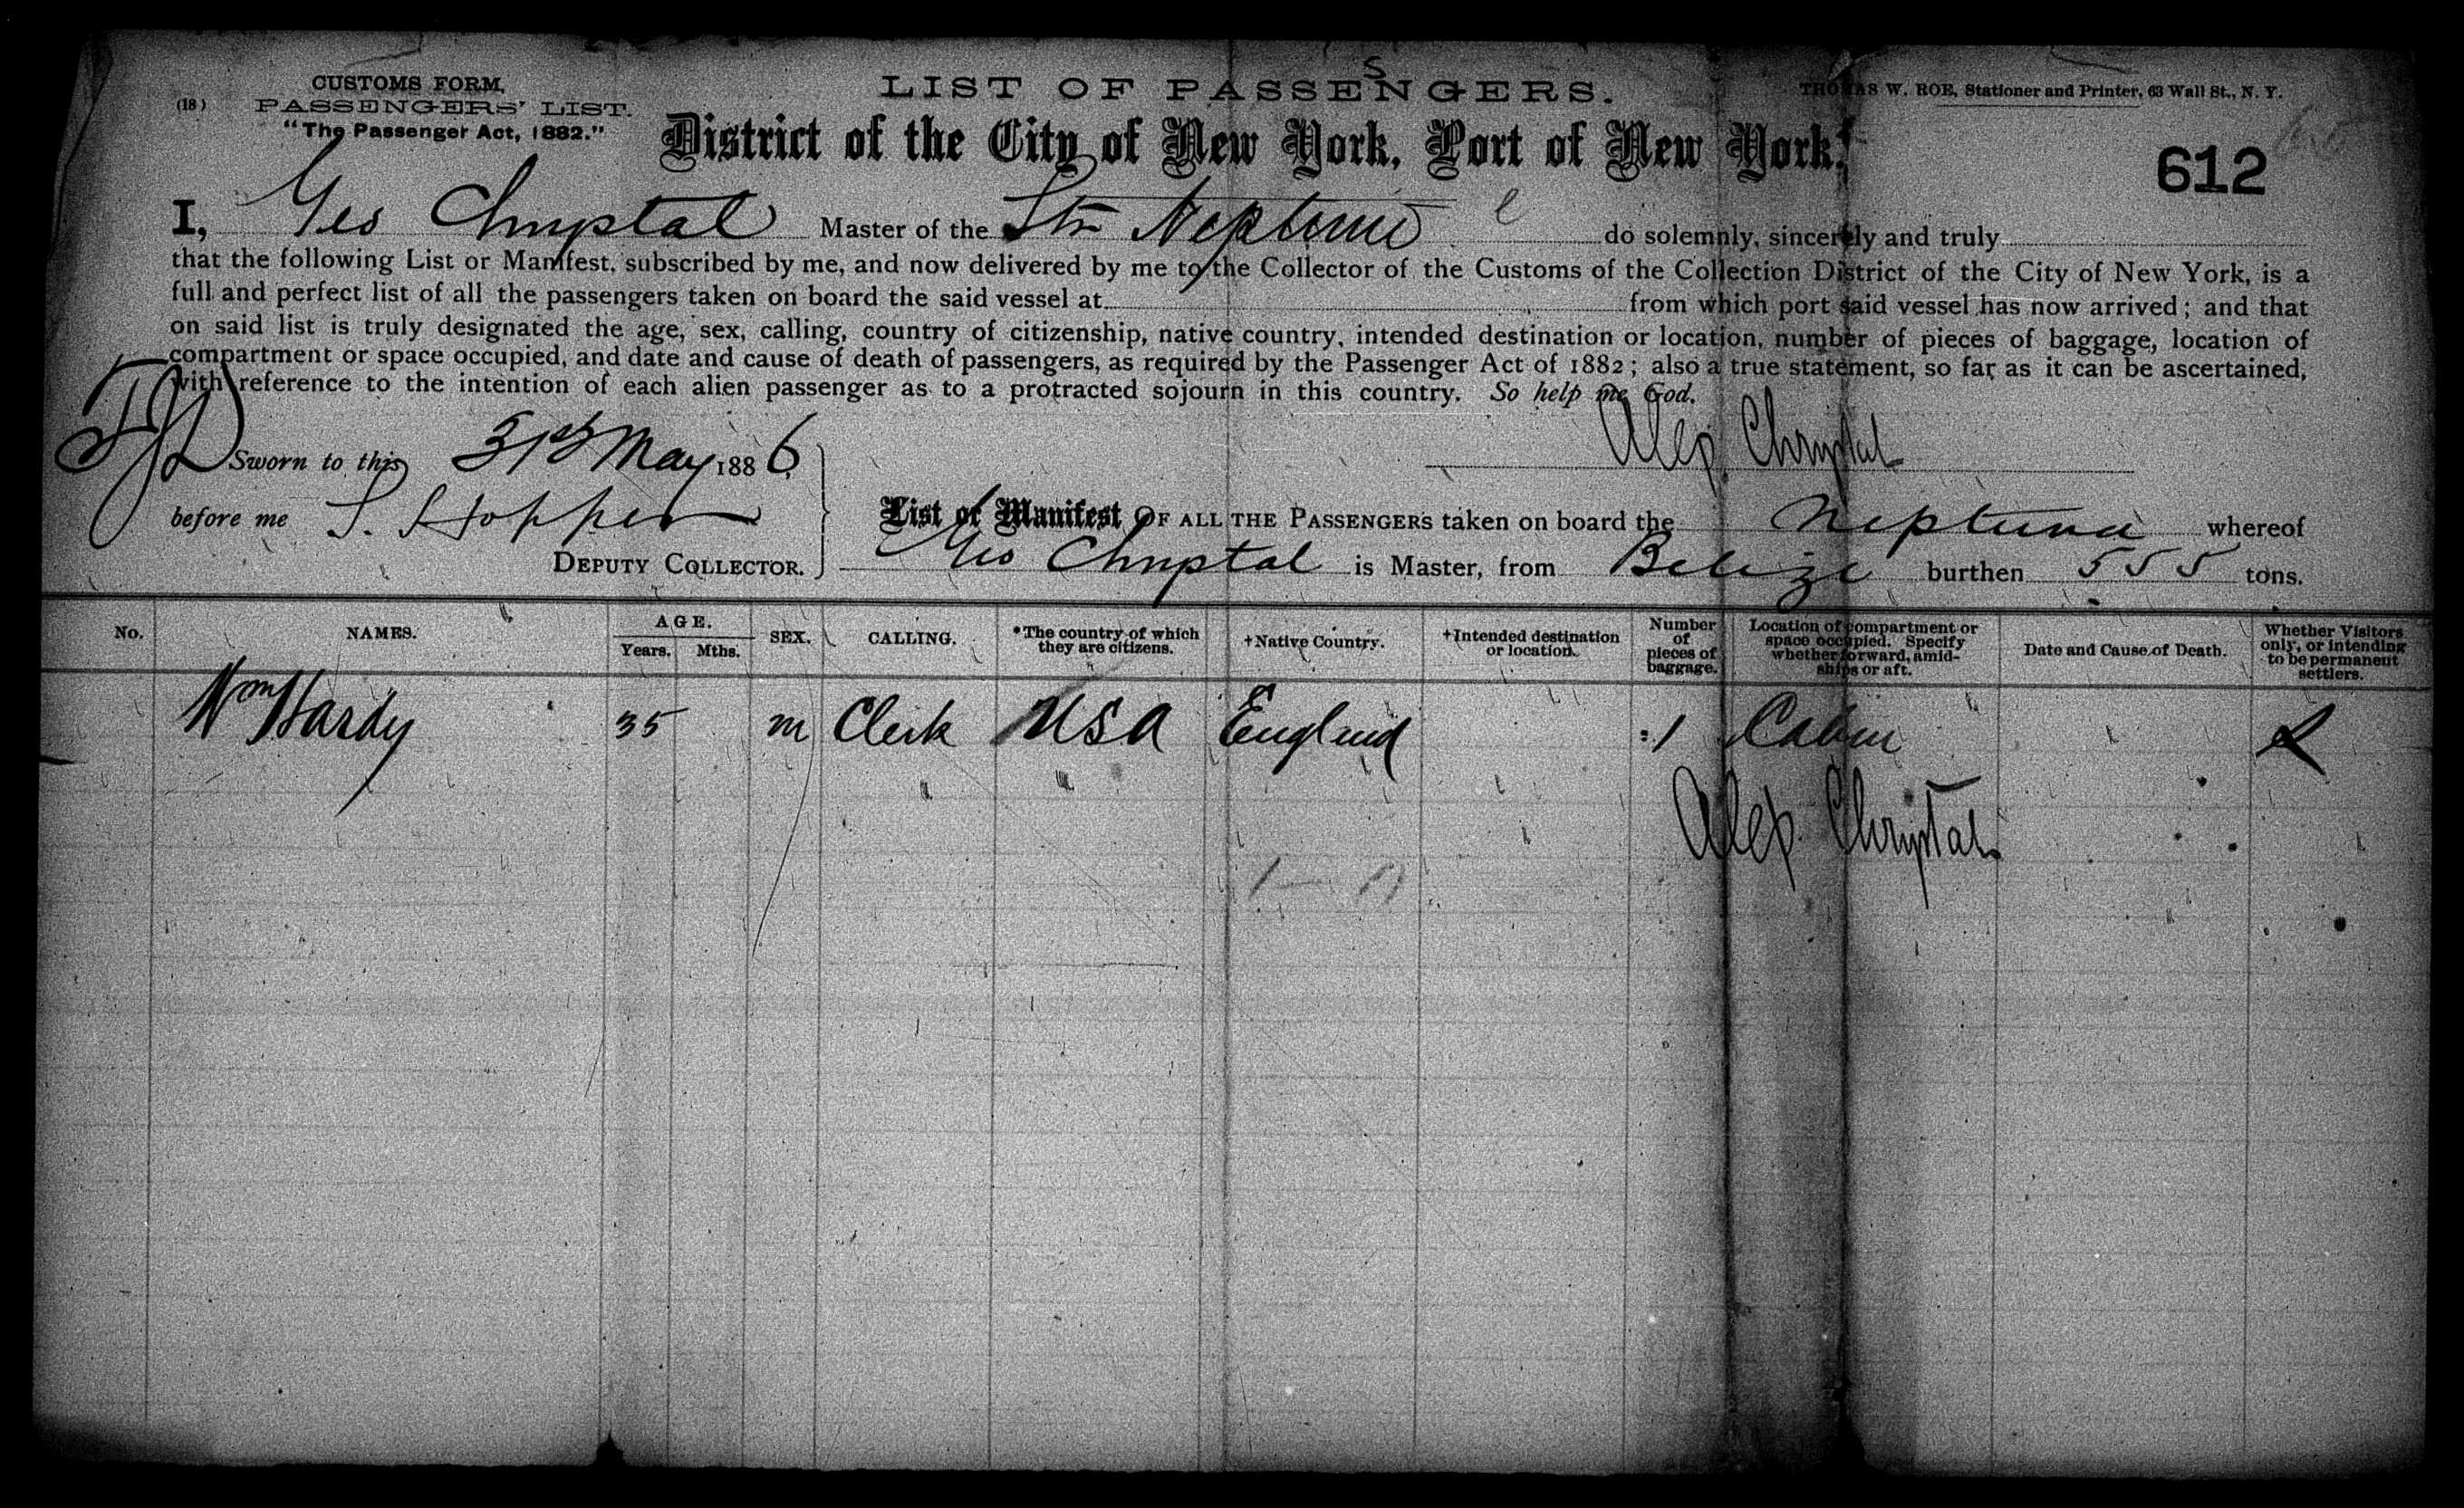 S
CUSTOMS FORM,
(18) PASSENGERS' LIST.
"The Passenger Act, 1882."
LIST OF PASSENGERS.
THOMAS W. ROE, Stationer and Printer, 63 Wall St., N. Y.
District of the City of New York, Port of New York.
612
I, Geo Chrystal Master of the Str Neptune do solemnly, sincerely and truly
that the following List or Manifest, subscribed by me, and now delivered by me to the Collector of the Customs of the Collection District of the City of New York, is a
full and perfect list of all the passengers taken on board the said vessel at from which port said vessel has now arrived; and that
on said list is truly designated the age, sex, calling, country of citizenship, native country, intended destination or location, number of pieces of baggage, location of
compartment or space occupied, and date and cause of death of passengers, as required by the Passenger Act of 1882; also a true statement, so far as it can be ascertained,
with reference to the intention of each alien passenger as to a protracted sojourn in this country. So help me God.
Alex. Chrystal
Sworn to this 31st May 1886
before me S. Hopper
DEPUTY COLLECTOR.
List or Manifest OF ALL THE PASSENGERS taken on board the Neptune whereof
Geo Chrystal is Master, from Belize burthen 555 tons.
No. NAMES. AGE. Years. Mths. SEX. CALLING. *The country of which they are citizens. †Native Country. †Intended destination or location. Number of pieces of baggage. Location of compartment or space occupied. Specify whether forward, amidships or aft. Date and Cause of Death. Whether Visitors only, or intending to be permanent settlers.
Wm Hardy 35 m Clerk USA England 1 Cabin
Alex. Chrystal